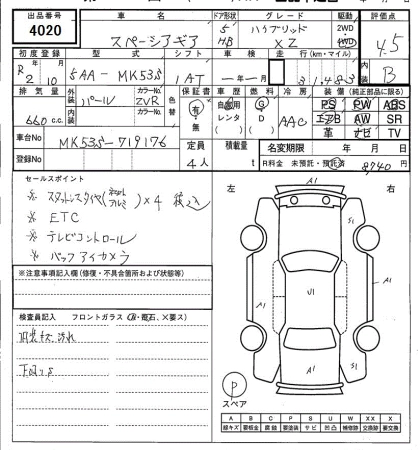 出品番号 車名 ドア形状 グレード 駆動 評価点
4020 スペーシアギア 5 HB ハイブリッド XZ 2WD 4WD 4.5
初度登録 型式 シフト 車検 走行(km・マイル) 内装
R2 10 5AA-MK53S 1AT 年 月 31,483 B
排気量 外装 カラーNo. 色替 保証書 車歴 燃料 冷房 装備(純正部品に限る)
660 c.c. パール ZVR 有・無 自家用 レンタ G D AAC PS PW ABS
内装 カラーNo. エアB AW SR
車台No MK53S-719176 定員 積載量 革 ナビ TV
登録No 4人 t 名変期限 年 月 日
R料金 未預託・預託済 8740 円
セールスポイント
※ スタットレスタイヤ ×4 積込
※ ETC
※ テレビコントロール
※ バックアイカメラ
※注意事項記入欄(修復・不具合箇所および状態等)
検査員記入 フロントガラス
内装キズ 汚れ
下回りS
左 右
A1
A1 U1 S1 A1
A1 S1
P
スペア
A B C P S U W X XX ×
線キズ 要板金 腐蝕 要塗装 サビ 凹凸 補修跡 交換跡 要交換